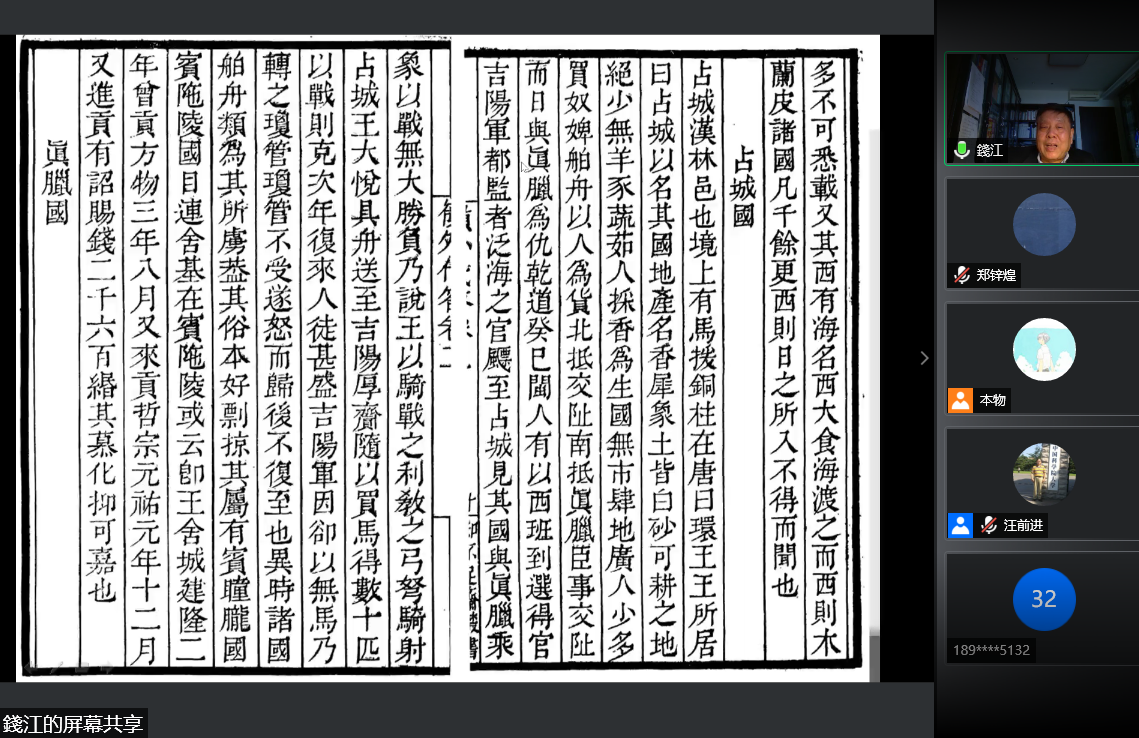 多不可悉載又其西有海名西大食海渡之而西則木
蘭皮諸國凡千餘更西則日之所入不得而聞也
占城國
占城漢林邑也境上有馬援銅柱在唐曰環王王所居
曰占城以名其國地產名香犀象土皆白砂可耕之地
絕少無羊豕蔬茹人採香爲生國無市肆地廣人少多
買奴婢舶舟以人爲貨北抵交阯南抵眞臘臣事交阯
而日與眞臘爲仇乾道癸巳閩人有以西班到選得官
吉陽軍都監者泛海之官飃至占城見其國與眞臘乘
象以戰無大勝負乃說王以騎戰之利敎之弓弩騎射
占城王大悅具舟送至吉陽厚齎隨以買馬得數十匹
以戰則克次年復來人徒甚盛吉陽軍因卻以無馬乃
轉之瓊管瓊管不受遂怒而歸後不復至也異時諸國
舶舟類爲其所虜葢其俗本好剽掠其屬有賓瞳朧國
賓陁陵國目連舍基在賓陁陵或云卽王舍城建隆二
年曾貢方物三年八月又來貢哲宗元祐元年十二月
又進貢有詔賜錢二千六百緡其慕化抑可嘉也
眞臘國
錢江
郑锌煌
本物
汪前进
32
189****5132
錢江的屏幕共享